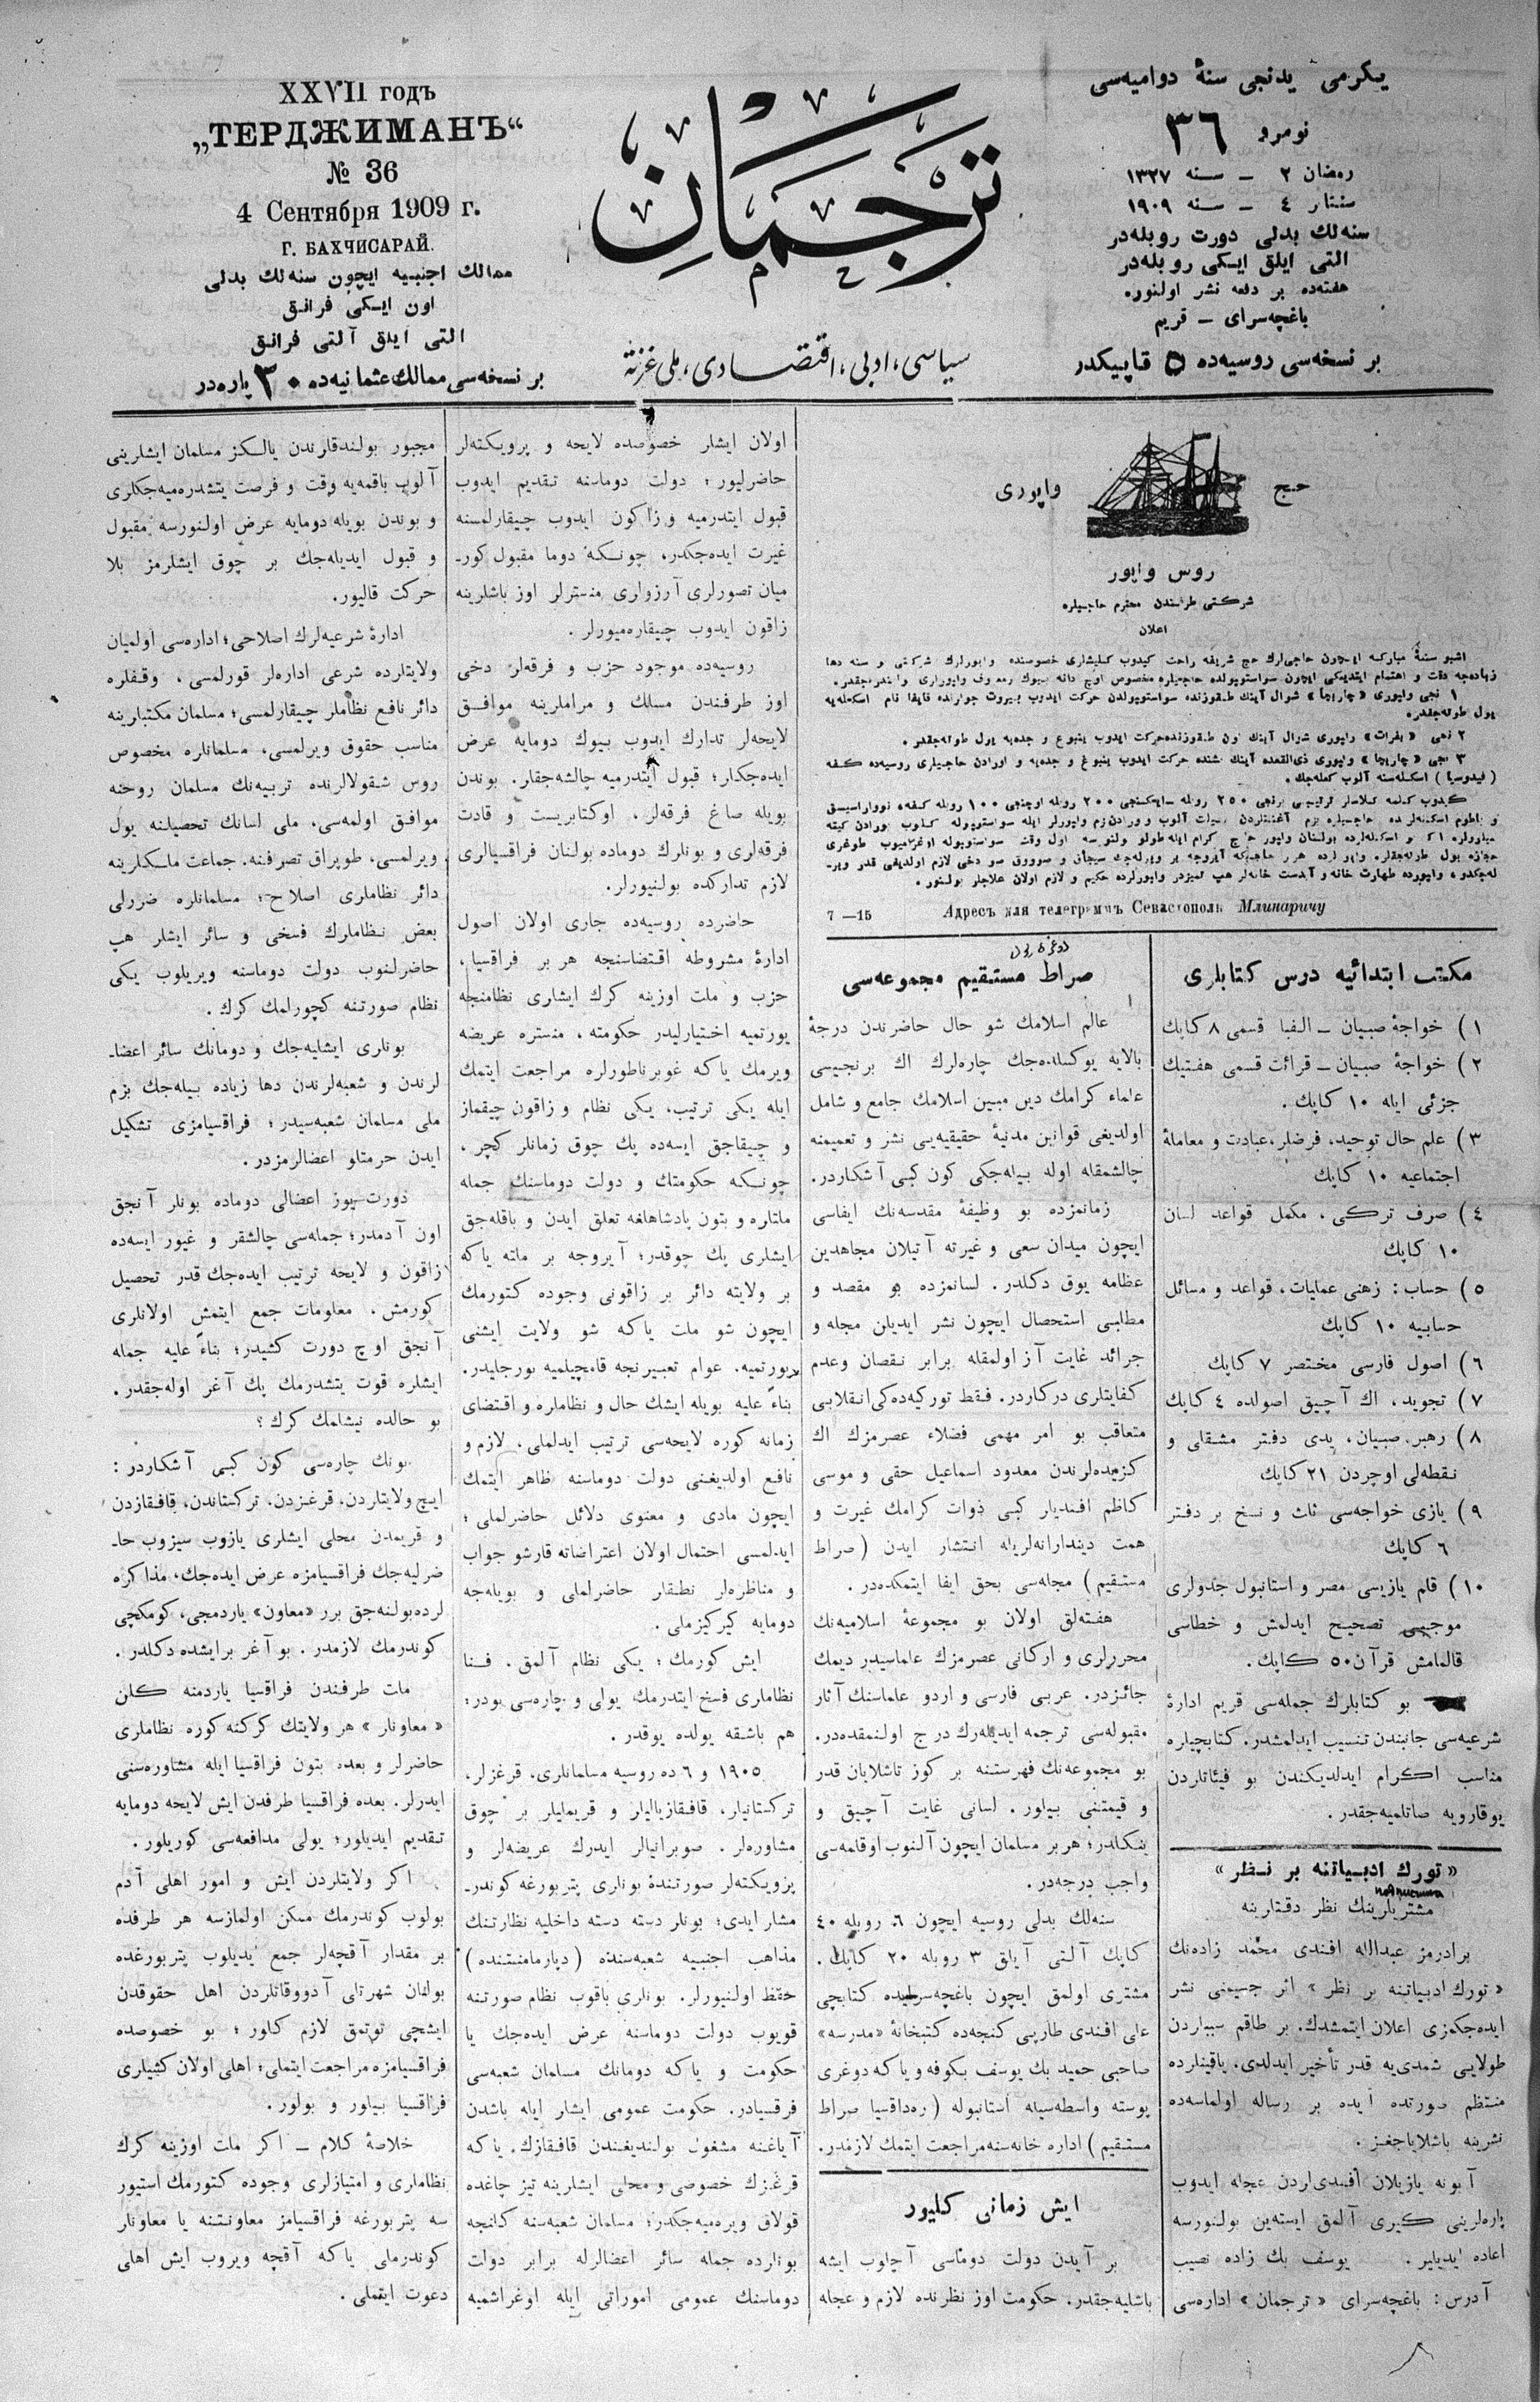 یكرمی یدنجی سنهٔ دوامیه‌سی
نومرو ٣٦
رمضان ٢ – سنه ١٣٢٧
سنتار ٤ – سنه ١٩٠٩
سنه‌لك بدلی دورت روبله‌در
التی ایلق ایكی روبله‌در
هفته‌ده بر دفعه نشر اولنور.
باغچه‌سرای – قریم
بر نسخه‌سی روسیه‌ده ٥ قاپیكدر
ترجمان
سیاسی، ادبی، اقتصادی، ملی غزته
XXVII годъ
„ТЕРДЖИМАНЪ“
№ 36
4 Сентября 1909 г.
Г. БАХЧИСАРАЙ.
ممالك اجنبیه ایچون سنه‌لك بدلی
اون ایكی فرانق
التی ایلق آلتی فرانق
بر نسخه‌سی ممالك عثمانیه‌ده ٣٠ پاره‌در
حج
واپوری
روس واپور
شركتی طرفندن محترم حاجیلره
اعلان
7 —15 Адресъ для телеграммъ Севастополь Млинаричу
مكتب ابتدائیه درس كتابلری
١) خواجهٔ صبیان – الفبا قسمی ٨ كاپك
٢) خواجهٔ صبیان – قرائت قسمی هفتیك
جزئی ایله ١٠ كاپك.
٣) علم حال توحید، فرضلر، عبادت و معاملهٔ
اجتماعیه ١٠ كاپك
٤) صرف تركی، مكمل قواعد لسان
١٠ كاپك
٥) حساب: زهنی عملیات، قواعد و مسائل
حسابیه ١٠ كاپك
٦) اصول فارسی مختصر ٧ كاپك
٧) تجوید، اك آچیق اصولده ٤ كاپك
٨) رهبر صبیان، یدی دفتر مشقلی و
نقطه‌لی اوچردن ٢١ كاپك
٩) یازی خواجه‌سی ثلث و نسخ بر دفتر
٦ كاپك
١٠) قلم یازیسی مصر و استانبول جدولری
موجبی تصحیح ایدلمش و خطاسی
قالمامش قرآن ٥٠ كاپك.
بو كتابلرك جمله‌سی قریم ادارهٔ
شرعیه‌سی جانبندن تنسیب ایدلمشدر. كتابچیلره
مناسب اكرام ایدلدیكندن بو فیئاتلردن
یوقارویه صاتلمیه‌جقدر.
«تورك ادبیاتنه بر نظر»
مشتریلرینك نظر دقتلرینه
برادرمز عبدالله افندی محمد زاده‌نك
«تورك ادبیاتنه بر نظر» اثر جسیمنی نشر
ایده‌جكمزی اعلان ایتمشدك. بر طاقم سببلردن
طولایی شمدی‌یه قدر تأخیر ایدلدی. یاقینلرده
منتظم صورتده آیده بر رساله اولماسه‌ده
نشرینه باشلایاجغز.
آبونه یازیلان افندیلردن عجله ایدوب
پاره‌لرینی كیری آلمق ایسته‌ین بولنورسه
اعاده ایدیلیر. یوسف بك زاده نصیب
آدرس: باغچه‌سرای «ترجمان» اداره‌سی
صراط مستقیم مجموعه‌سی
عالم اسلامك شو حال حاضرندن درجهٔ
بالایه یوكسله‌جك چاره‌لرك اك برنجیسی
علماء كرامك دین مبین اسلامك جامع و شامل
اولدیغی قوانین مدنیهٔ حقیقیه‌یی نشر و تعمیمنه
چالشمقله اوله بیله‌جكی كون كبی آشكاردر.
زمانمزده بو وظیفهٔ مقدسه‌نك ایفاسی
ایچون میدان سعی و غیرته آتیلان مجاهدین
عظامه یوق دكلدر. لسانمزده بو مقصد و
مطلبی استحصال ایچون نشر ایدیلن مجله و
جرائد غایت آز اولمقله برابر نقصان وعدم
كفایتلری دركاردر. فقط توركیه‌ده‌كی انقلابی
متعاقب بو امر مهمی فضلاء عصرمزك اك
كزیده‌لرندن معدود اسماعیل حقی و موسی
كاظم افندیلر كبی ذوات كرامك غیرت و
همت دیندارانه‌لریله انتشار ایدن (صراط
مستقیم) مجله‌سی بحق ایفا ایتمكده‌در.
هفته‌لق اولان بو مجموعهٔ اسلامیه‌نك
محررلری و اركانی عصرمزك علماسیدر دیمك
جائزدر. عربی فارسی و اردو علماسنك آثار
مقبوله‌سی ترجمه ایدیله‌رك درج اولنمقده‌در.
بو مجموعه‌نك فهرستنه بر كوز تاشلایان قدر
و قیمتنی بیلور. لسانی غایت آچیق و
ینكلدر؛ هر بر مسلمان ایچون آلنوب اوقلمه‌سی
واجب درجه‌در.
سنه‌لك بدلی روسیه ایچون ٦ روبله ٤٠
كاپك آلتی آیلق ٣ روبله ٢٠ كاپك.
مشتری اولمق ایچون باغچه‌سرایده كتابچی
علی افندی طارپی كنجه‌ده كتبخانهٔ «مدرسه»
صاحبی حمید بك یوسف بكوفه و یاكه دوغری
پوسته واسطه‌سیله استانبوله (ره‌داقسیا صراط
مستقیم) اداره خانه‌سنه مراجعت ایتمك لازمدر.
ایش زمانی كلیور
بر آیدن دولت دوماسی آچلوب ایشه
باشلیه‌جقدر. حكومت اوز نظرنده لازم و عجله
اولان ایشلر خصوصده لایحه و پرویكته‌لر
حاضرلیور؛ دولت دوماسنه تقدیم ایدوب
قبول ایتدرمیه و زاكون ایدوب چیقارلمسنه
غیرت ایده‌جكدر، چونكه دوما مقبول كور‌ـ
میان تصورلری آرزولری منسترلر اوز باشلرینه
زاقون ایدوب چیقاره‌میورلر.
روسیه‌ده موجود حزب و فرقه‌لر دخی
اوز طرفندن مسلك و مراملرینه موافق
لایحه‌لر تدارك ایدوب بیوك دومایه عرض
ایده‌جكلر؛ قبول ایتدرمیه چالشه‌جقلر. بوندن
بویله صاغ فرقه‌لر، اوكتابریست و قادت
فرقه‌لری و بونلرك دوماده بولنان فراقسیالری
لازم تداركده بولنیورلر.
حاضرده روسیه‌ده جاری اولان اصول
ادارهٔ مشروطه اقتضاسنجه هر بر فراقسیا،
حزب و ملت اوزینه كرك ایشلری نظامنجه
یورتمیه اختیارلیدر حكومته، منستره عریضه
ویرمك یاكه غوبرناطورلره مراجعت ایتمك
ایله یكی ترتیب، یكی نظام و زاقون چیقماز
و چیقاجق ایسه‌ده پك چوق زمانلر كچر،
چونكه حكومتك و دولت دوماسنك جمله
ملتلره و بتون پادشاهلغه تعلق ایدن و باقله‌جق
ایشلری پك چوقدر؛ آیروجه بر ملته یاكه
بر ولایته دائر بر زاقونی وجوده كتورمك
ایچون شو ملت یاكه شو ولایت ایشنی
یورتمیه، عوام تعبیرنجه قامچیلمیه بورجلیدر.
بناءً علیه بویله ایشك حال و نظاملره و اقتضای
زمانه كوره لایحه‌سی ترتیب ایدلملی، لازم و
نافع اولدیغنی دولت دوماسنه ظاهر ایتمك
ایچون مادی و معنوی دلائل حاضرلملی؛
ایدلمسی احتمال اولان اعتراضاته قارشو جواب
و مناظره‌لر نطقلر حاضرلملی و بویله‌جه
دومایه كیركیزملی.
ایش كورمك؛ یكی نظام آلمق، فنا
نظاملری فسخ ایتدرمك یولی و چاره‌سی بودر؛
هم باشقه یولده یوقدر.
١٩٠٥ و ٦ ده روسیه مسلمانلری، قرغزلر،
تركستانیلر، قافقازیالیلر و قریملیلر بر چوق
مشاوره‌لر. صوبرانیالر ایدرك عریضه‌لر و
پرویكته‌لر صورتندهٔ بونلری پتربورغه كوندر‌ـ
مشلر ایدی؛ بونلر دسته دسته داخلیه نظارتنك
مذاهب اجنبیه شعبه‌سنده (دپارمامنتنده)
حفظ اولنیورلر. بونلری باقوب نظام صورتنه
قویوب دولت دوماسنه عرض ایده‌جك یا
حكومت و یاكه دومانك مسلمان شعبه‌سی
فرقسیادر. حكومت عمومی ایشلر ایله باشدن
آیاغنه مشغول بولندیغندن قافقازك، یاكه
قرغزك خصوصی و محلی ایشلرینه تیز چاغده
قولاق ویره‌میه‌جكدر؛ مسلمان شعبه‌سنه كلنجه
بونلرده جمله سائر اعضالرله برابر دولت
دوماسنك عمومی اموراتی ایله اوغراشمیه
مجبور بولندقلرندن یالكز مسلمان ایشلرینی
آلوب باقمه‌یه وقت و فرصت یتشدره‌میه‌جكلری
و بوندن بویله دومایه عرض اولنورسه مقبول
و قبول ایدیله‌جك بر چوق ایشلرمز بلا
حركت قالیور.
ادارهٔ شرعیه‌لرك اصلاحی؛ اداره‌سی اولمیان
ولایتلرده شرعی اداره‌لر قورلمسی، وقفلره
دائر نافع نظاملر چیقارلمسی؛ مسلمان مكتبلرینه
مناسب حقوق ویرلمسی، مسلمانلره مخصوص
روس شقولالرنده تربیه‌نك مسلمان روحنه
موافق اولمه‌سی، ملی لسانك تحصیلنه یول
ویرلمسی، طوپراق تصرفنه. جماعت ملكلرینه
دائر نظاملری اصلاح؛ مسلمانلره ضررلی
بعض نظاملرك فسخی و سائر ایشلر هپ
حاضرلنوب دولت دوماسنه ویریلوب یكی
نظام صورتنه كچورلمك كرك.
بونلری ایشلیه‌جك و دومانك سائر اعضا‌ـ
لرندن و شعبه‌لرندن دها زیاده بیله‌جك بزم
ملی مسلمان شعبه‌سیدر؛ فراقسیامزی تشكیل
ایدن حرمتلو اعضالرمزدر.
دورت یوز اعضالی دوماده بونلر آنجق
اون آدمدر؛ جمله‌سی چالشقر و غیور ایسه‌ده
زاقون و لایحه ترتیب ایده‌جك قدر تحصیل
كورمش، معلومات جمع ایتمش اولانلری
آنجق اوچ دورت كشیدر؛ بناءً علیه جمله
ایشلره قوت یتشدرمك پك آغر اوله‌جقدر.
بو حالده نیشلمك كرك؟
بونك چاره‌سی كون كبی آشكاردر:
ایچ ولایتلردن، قرغزدن، تركستاندن، قافقازدن
و قریمدن محلی ایشلری یازوب سیزوب حا‌ـ
ضرلیه‌جك فراقسیامزه عرض ایده‌جك، مذاكره
لرده‌بولنه‌جق برر «معاون» یاردمجی، كومكچی
كوندرمك لازمدر. بو آغر بر ایشده دكلدر.
ملت طرفندن فراقسیا یاردمنه كلن
«معاونلر» هر ولایتك كركنه كوره نظاملری
حاضرلر و بعده بتون فراقسیا ایله مشاوره‌سنی
ایدرلر. بعده فراقسیا طرفدن ایش لایحه دومایه
تقدیم ایدیلور؛ یولی مدافعه‌سی كوریلور.
اكر ولایتلردن ایش و امور اهلی آدم
بولوب كوندرمك ممكن اولمازسه هر طرفده
بر مقدار آقچه‌لر جمع ایدیلوب پتربورغده
بولنان شهرتلی آدووقاتلردن اهل حقوقدن
ایشچی توتمق لازم كلور؛ بو خصوصده
فراقسیامزه مراجعت ایتملی؛ اهلی اولان كشیلری
فراقسیا بیلور و بولور.
خلاصهٔ كلام – اكر ملت اوزینه كرك
نظاملری و امتیازلری وجوده كتورمك استیور
سه پتربورغه فراقسیامز معاونتنه یا معاونلر
كوندرملی یاكه آقچه ویروب ایش اهلی
دعوت ایتملی.